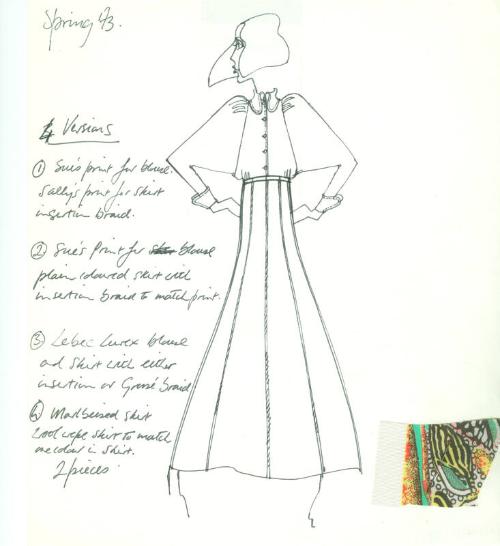 Spring 73.
4 Versions
① Sue's print for blouse.
Sally's print for skirt
insertion braid.
② Sue's Print for blouse
plain coloured skirt with
insertion braid to match print.
③ Lurex blouse
and skirt with either
insertion or braid
④ skirt
Wool crepe skirt to match
one colour in shirt.
2 pieces.